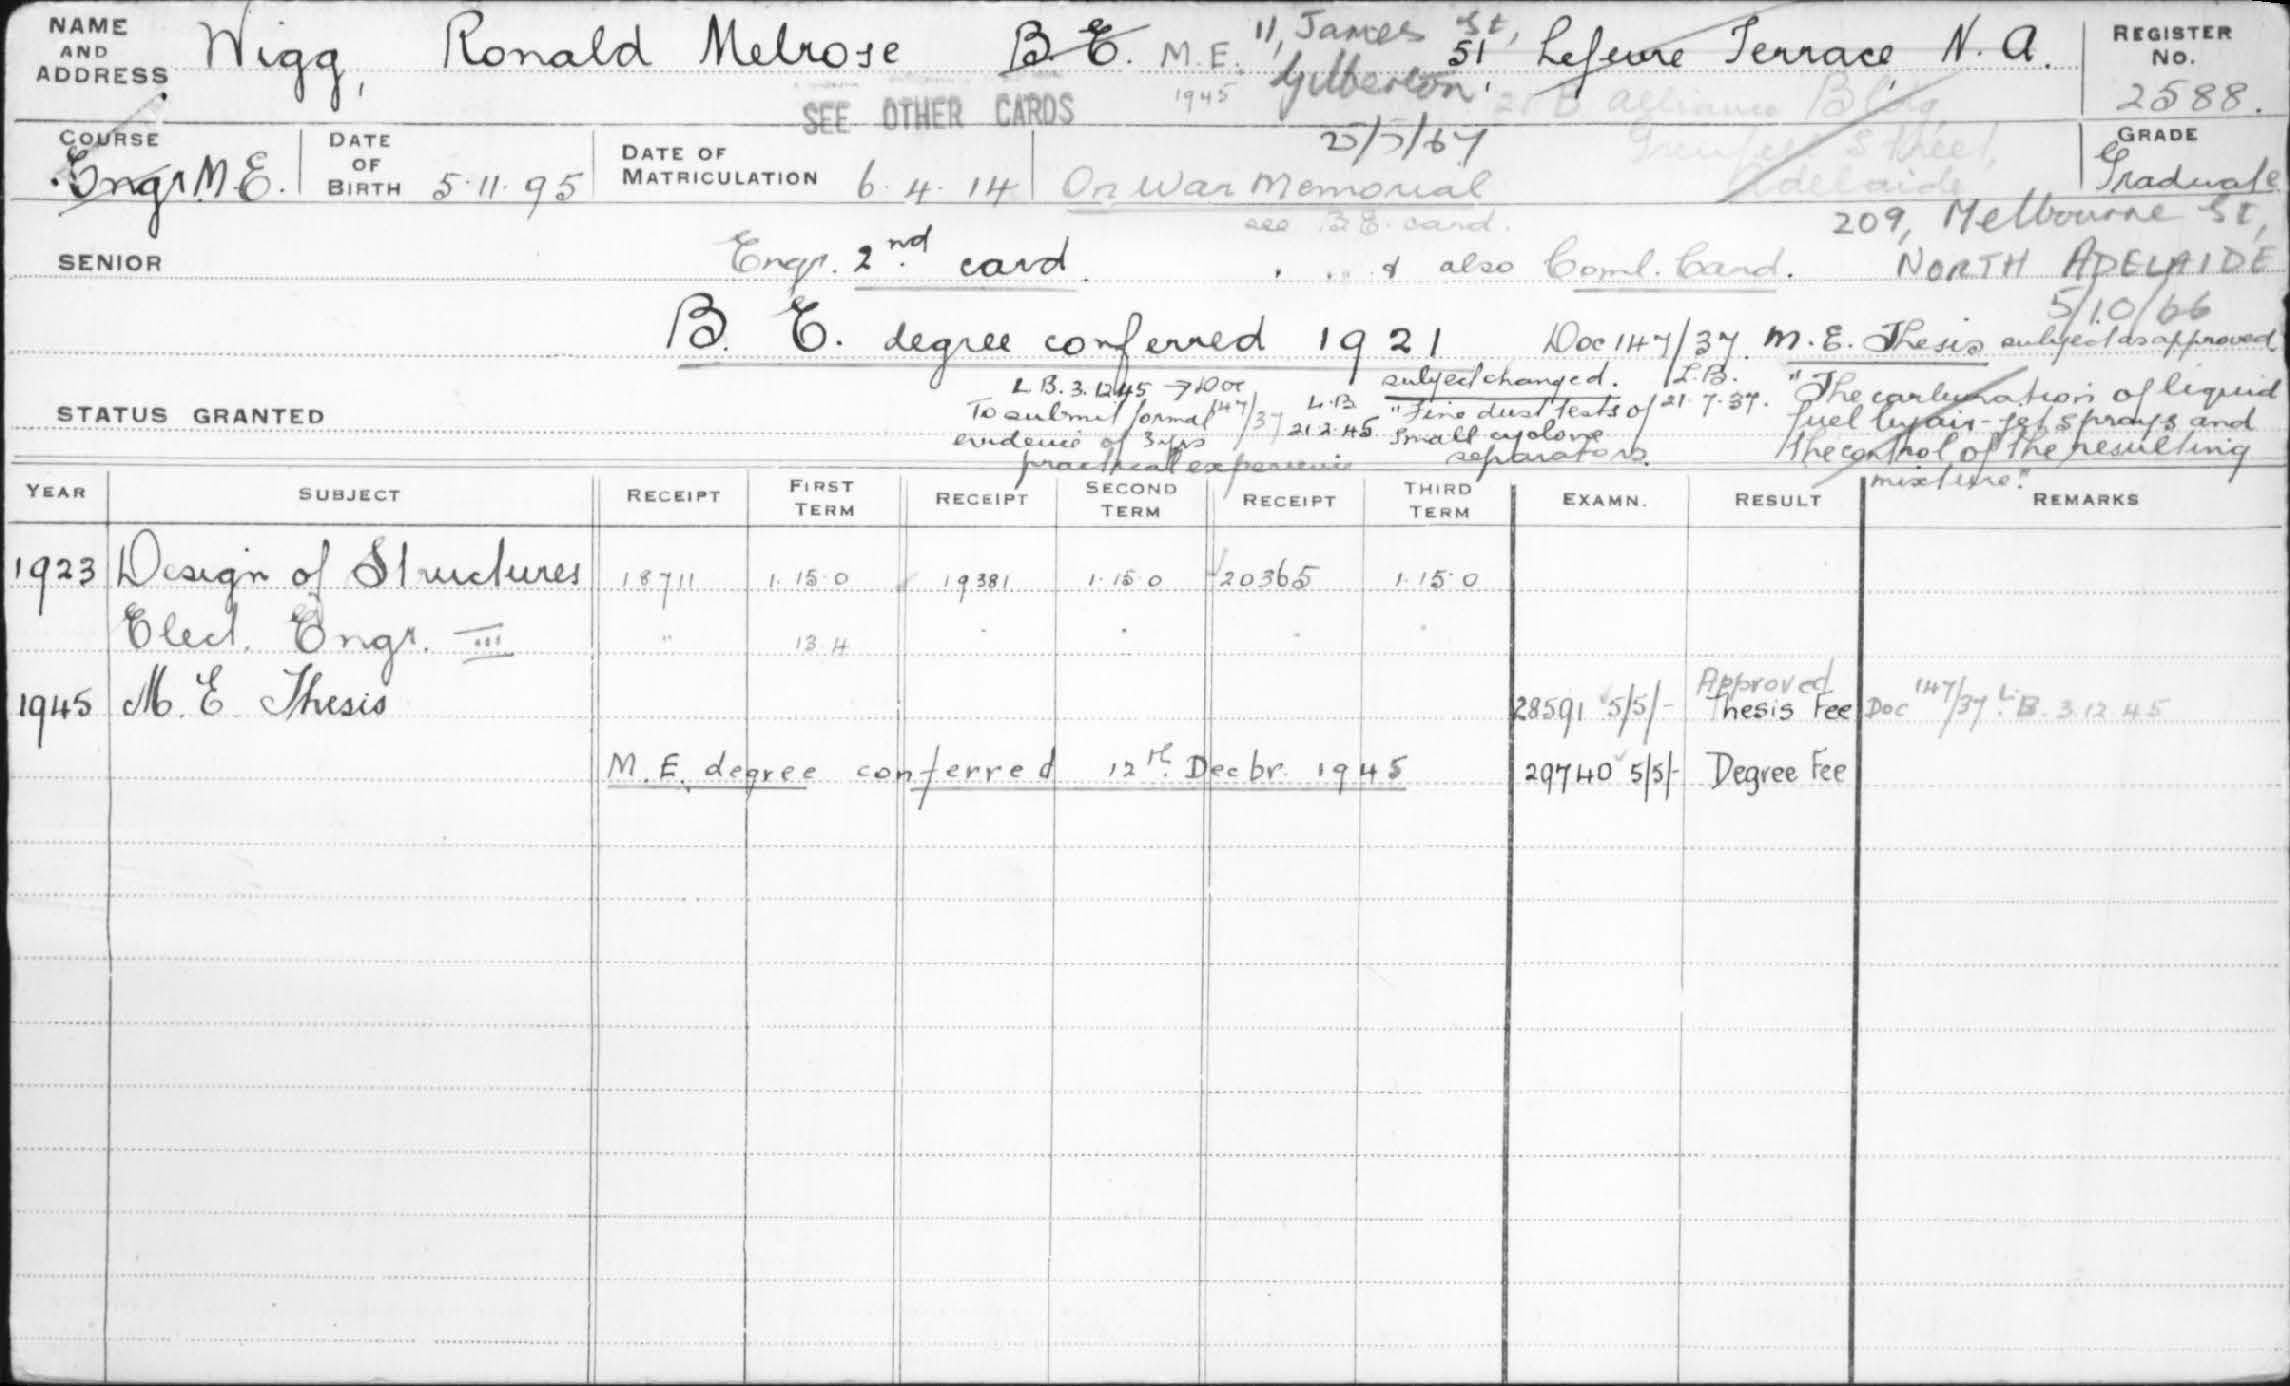 NAME AND ADDRESS Wigg, Ronald Melrose B.E. M.E. 1945 11, James St, Gilberton. 51 Lefevre Terrace, N. A. REGISTER No. 2588.
SEE OTHER CARDS
Alliance Bldg,
Street,
Adelaide
COURSE Engr M.E. DATE OF BIRTH 5.11.95 DATE OF MATRICULATION 6.4.14 On War Memorial GRADE Graduate
see B.E. card.
209, Melbourne St,
SENIOR Engr. 2nd card & also Coml. Card. NORTH ADELAIDE
5/10/66
B. E. degree conferred 1921 Doc 147/37. M.E. Thesis subject as approved
L.B. 21.7.37. "The carburation of liquid
fuel by air-jet sprays and
the control of the resulting
mixture".
subject changed.
L.B. 21.2.45 "Fine dust tests of
small cyclone
separators.
STATUS GRANTED L.B. 3.12.45 → Doc 147/37
To submit formal
evidence of 3 yrs
practical experience
YEAR SUBJECT RECEIPT FIRST TERM RECEIPT SECOND TERM RECEIPT THIRD TERM EXAMN. RESULT REMARKS
1923 Design of Structures 18711 1.15.0 19381 1.15.0 20365 1.15.0
Elect. Engr. III " 13.4
1945 M. E. Thesis 28591 5/5/- Approved Thesis Fee Doc 147/37 L.B. 3.12.45
M. E. degree conferred 12th Decbr. 1945 29740 5/5/- Degree Fee